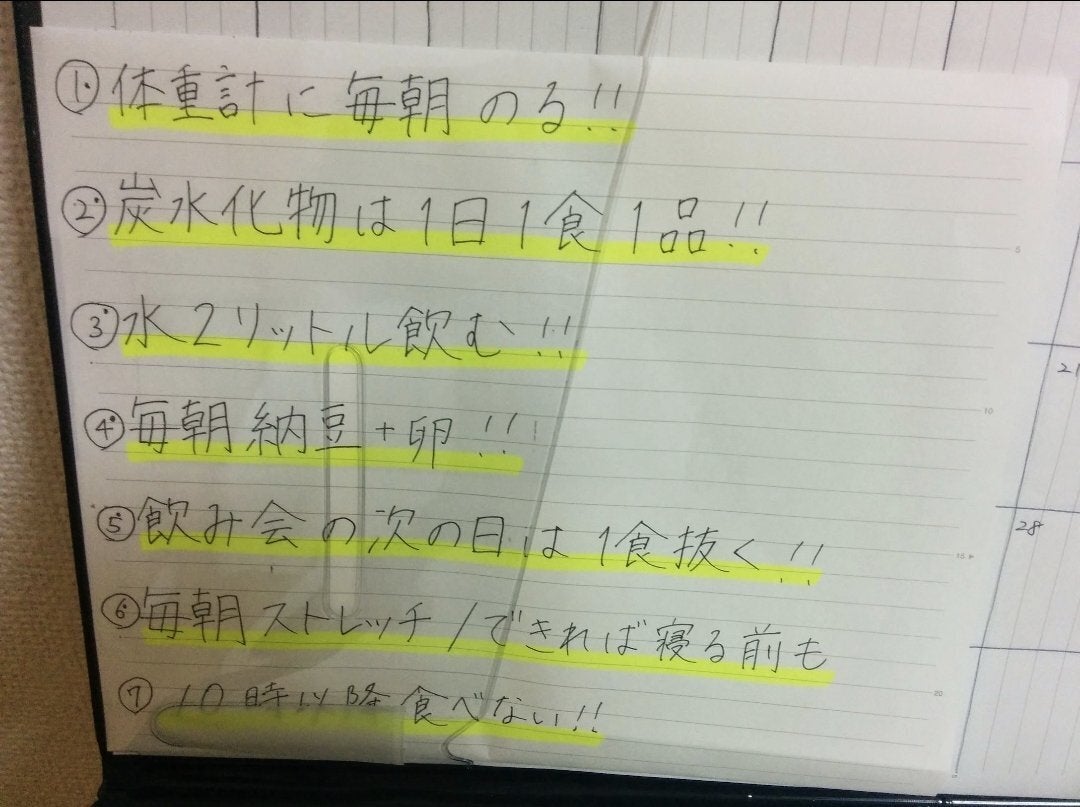 ① 体重計に毎朝のる!!
② 炭水化物は1日1食1品!!
5
③ 水2リットル飲む!!
21
④ 毎朝納豆+卵!!
10
⑤ 飲み会の次の日は1食抜く!!
28
15
⑥ 毎朝ストレッチ/できれば寝る前も
20
⑦ 10時以降食べない!!